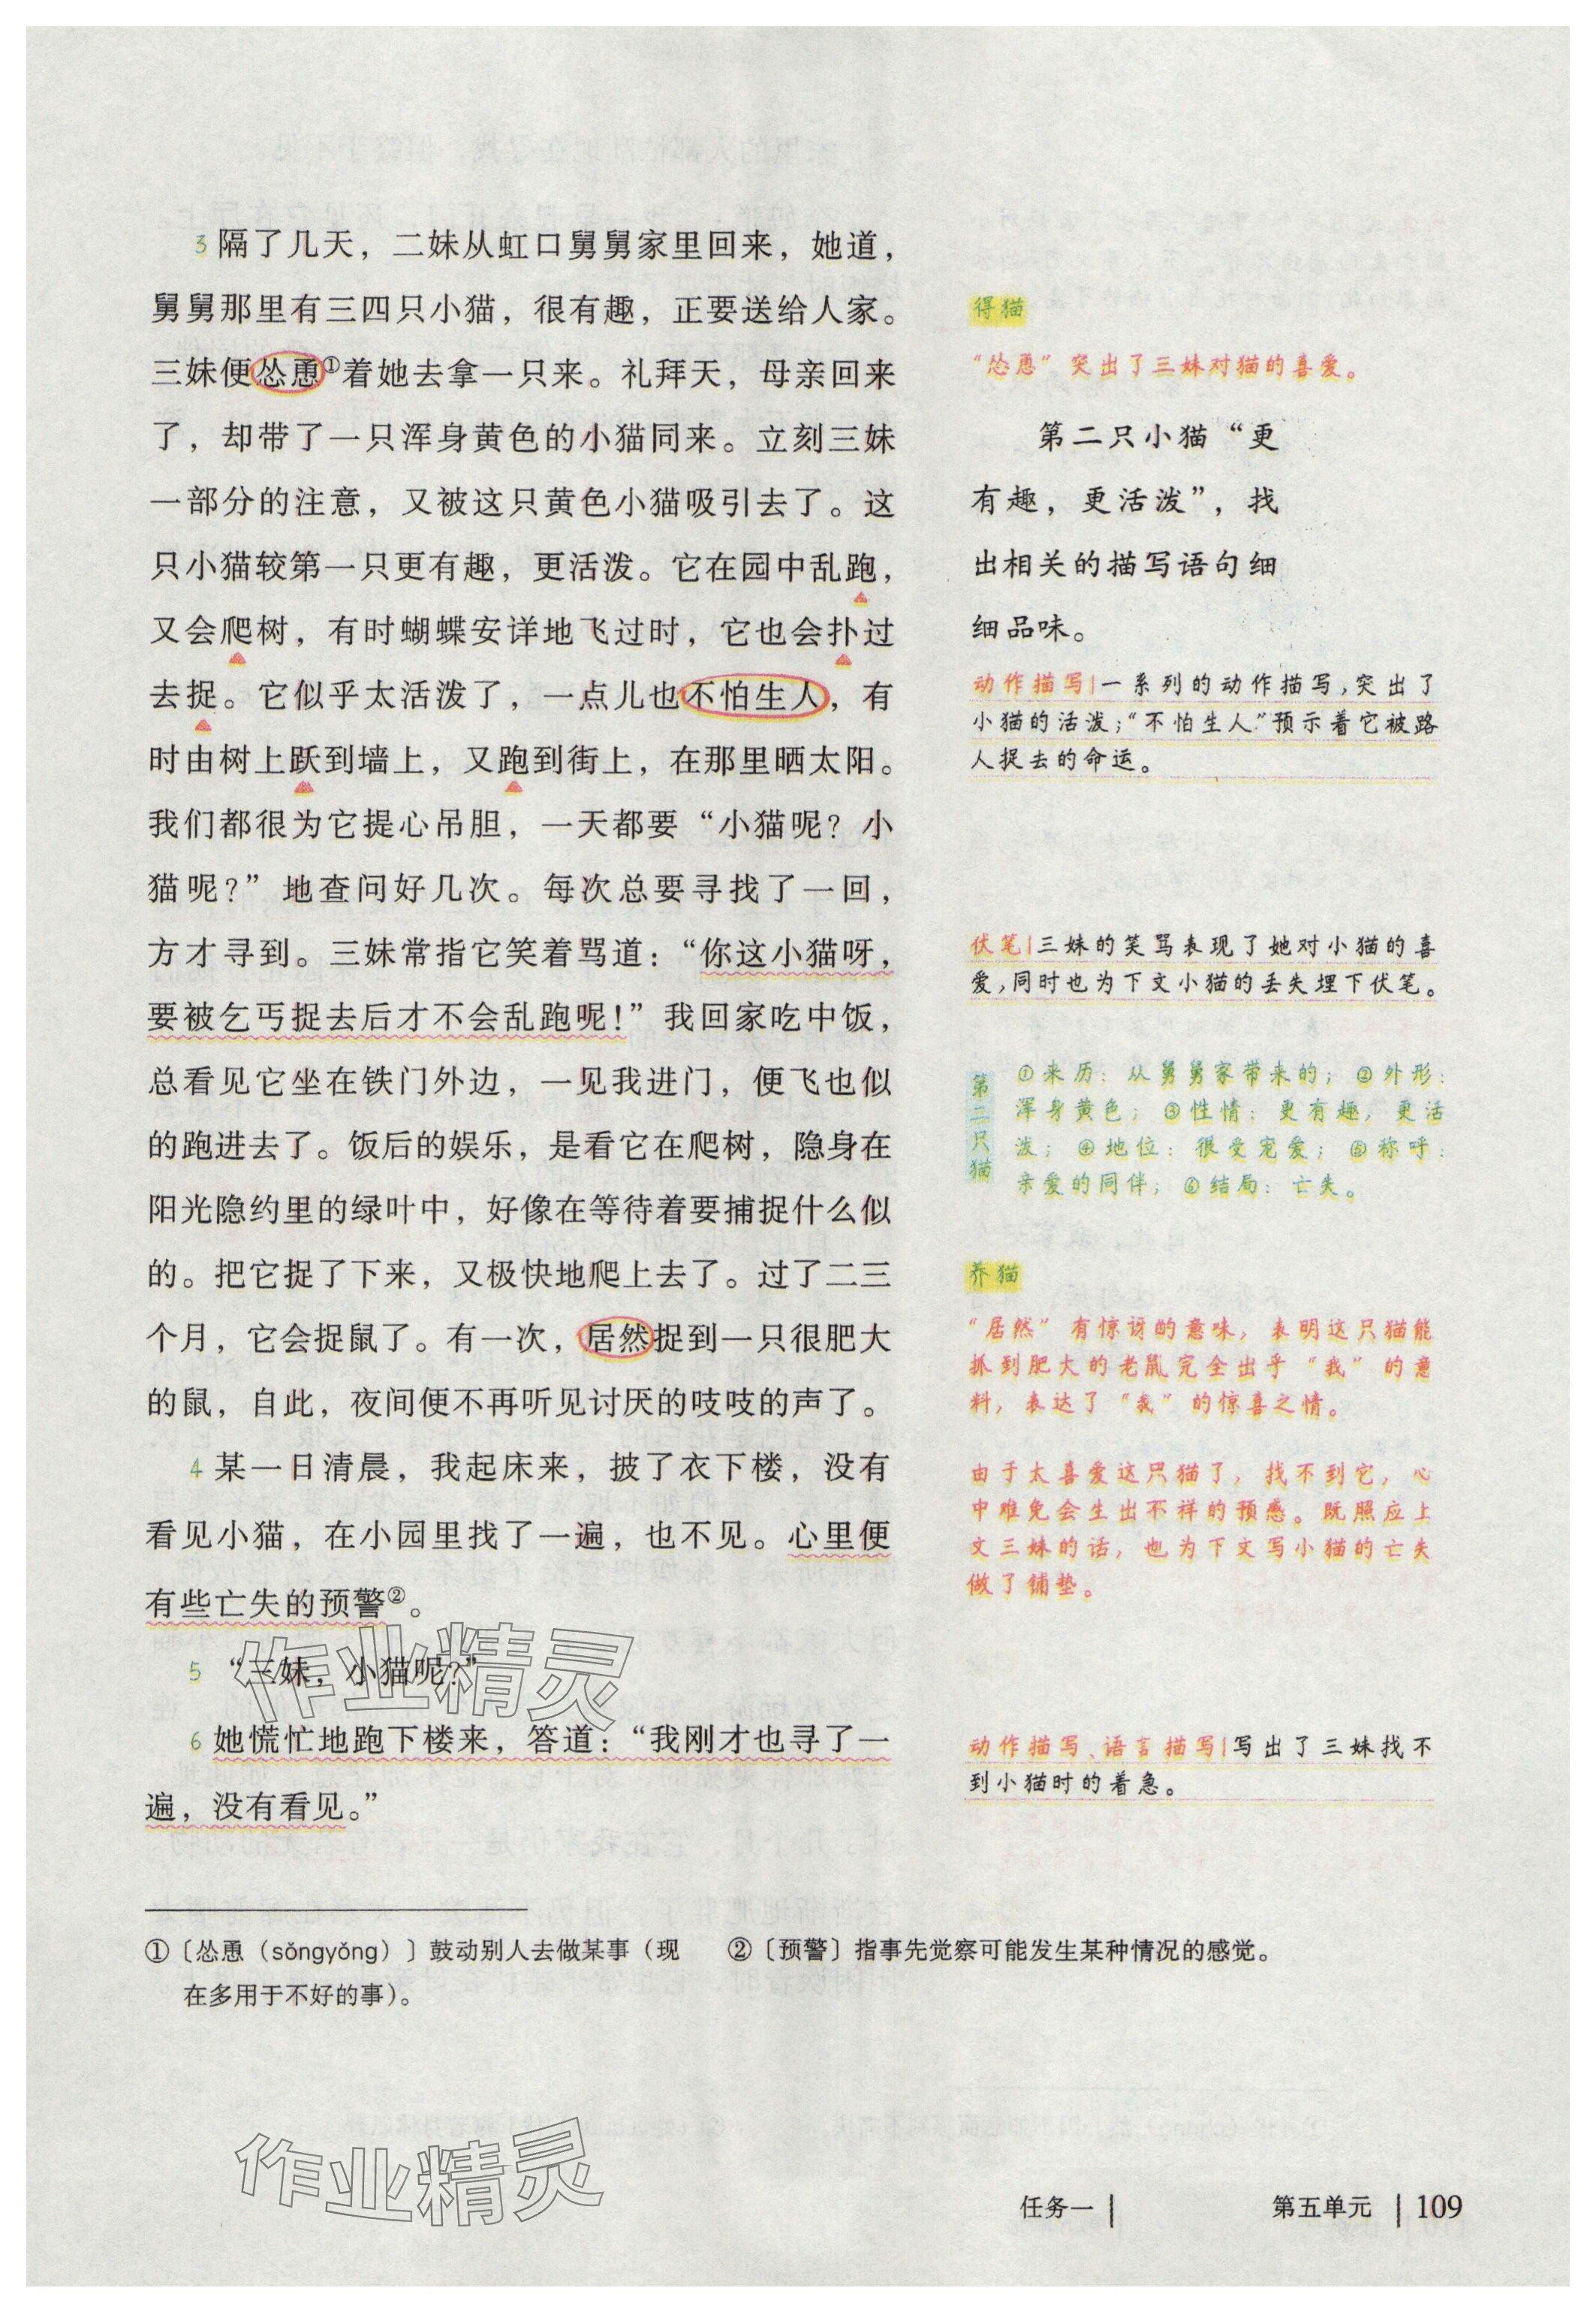 3 隔了几天，二妹从虹口舅舅家里回来，她道，
舅舅那里有三四只小猫，很有趣，正要送给人家。
三妹便怂恿①着她去拿一只来。礼拜天，母亲回来
了，却带了一只浑身黄色的小猫同来。立刻三妹
一部分的注意，又被这只黄色小猫吸引去了。这
只小猫较第一只更有趣，更活泼。它在园中乱跑，
又会爬树，有时蝴蝶安详地飞过时，它也会扑过
去捉。它似乎太活泼了，一点儿也不怕生人，有
时由树上跃到墙上，又跑到街上，在那里晒太阳。
我们都很为它提心吊胆，一天都要“小猫呢？小
猫呢？”地查问好几次。每次总要寻找了一回，
方才寻到。三妹常指它笑着骂道：“你这小猫呀，
要被乞丐捉去后才不会乱跑呢！”我回家吃中饭，
总看见它坐在铁门外边，一见我进门，便飞也似
的跑进去了。饭后的娱乐，是看它在爬树，隐身在
阳光隐约里的绿叶中，好像在等待着要捕捉什么似
的。把它捉了下来，又极快地爬上去了。过了二三
个月，它会捉鼠了。有一次，居然捉到一只很肥大
的鼠，自此，夜间便不再听见讨厌的吱吱的声了。
4 某一日清晨，我起床来，披了衣下楼，没有
看见小猫，在小园里找了一遍，也不见。心里便
有些亡失的预警②。
5 “三妹，小猫呢？”
6 她慌忙地跑下楼来，答道：“我刚才也寻了一
遍，没有看见。”
得猫
“怂恿”突出了三妹对猫的喜爱。
第二只小猫“更
有趣，更活泼”，找
出相关的描写语句细
细品味。
动作描写|一系列的动作描写，突出了
小猫的活泼；“不怕生人”预示着它被路
人捉去的命运。
伏笔|三妹的笑骂表现了她对小猫的喜
爱，同时也为下文小猫的丢失埋下伏笔。
第二只猫
①来历：从舅舅家带来的；②外形：
浑身黄色；③性情：更有趣，更活
泼；④地位：很受宠爱；⑤称呼：
亲爱的同伴；⑥结局：亡失。
养猫
“居然”有惊讶的意味，表明这只猫能
抓到肥大的老鼠完全出乎“我”的意
料，表达了“我”的惊喜之情。
由于太喜爱这只猫了，找不到它，心
中难免会生出不祥的预感。既照应上
文三妹的话，也为下文写小猫的亡失
做了铺垫。
动作描写、语言描写|写出了三妹找不
到小猫时的着急。
作业精灵
①〔怂恿（sǒngyǒng）〕鼓动别人去做某事（现
在多用于不好的事）。
②〔预警〕指事先觉察可能发生某种情况的感觉。
作业精灵
任务一 | 第五单元 | 109